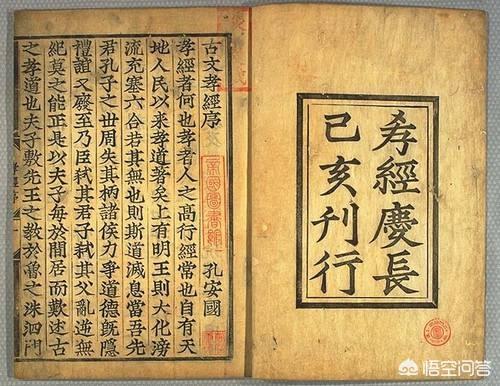 孝經慶長
己亥刊行
古文孝經序
孔安國
孝經者何也孝者人之高行經常也自有天
地人民以來孝道著矣上有明王則大化滂
流充塞六合若其無也則斯道滅息當吾先
君孔子之世周失其柄諸侯力爭道德既隱
禮誼又廢至乃臣弒其君子弒其父亂逆無
紀莫之能正是以夫子每於閒居而歎述古
之孝道也夫子敷先王之教於魯之洙泗門
孝經序
帝國圖書館藏
悟空问答